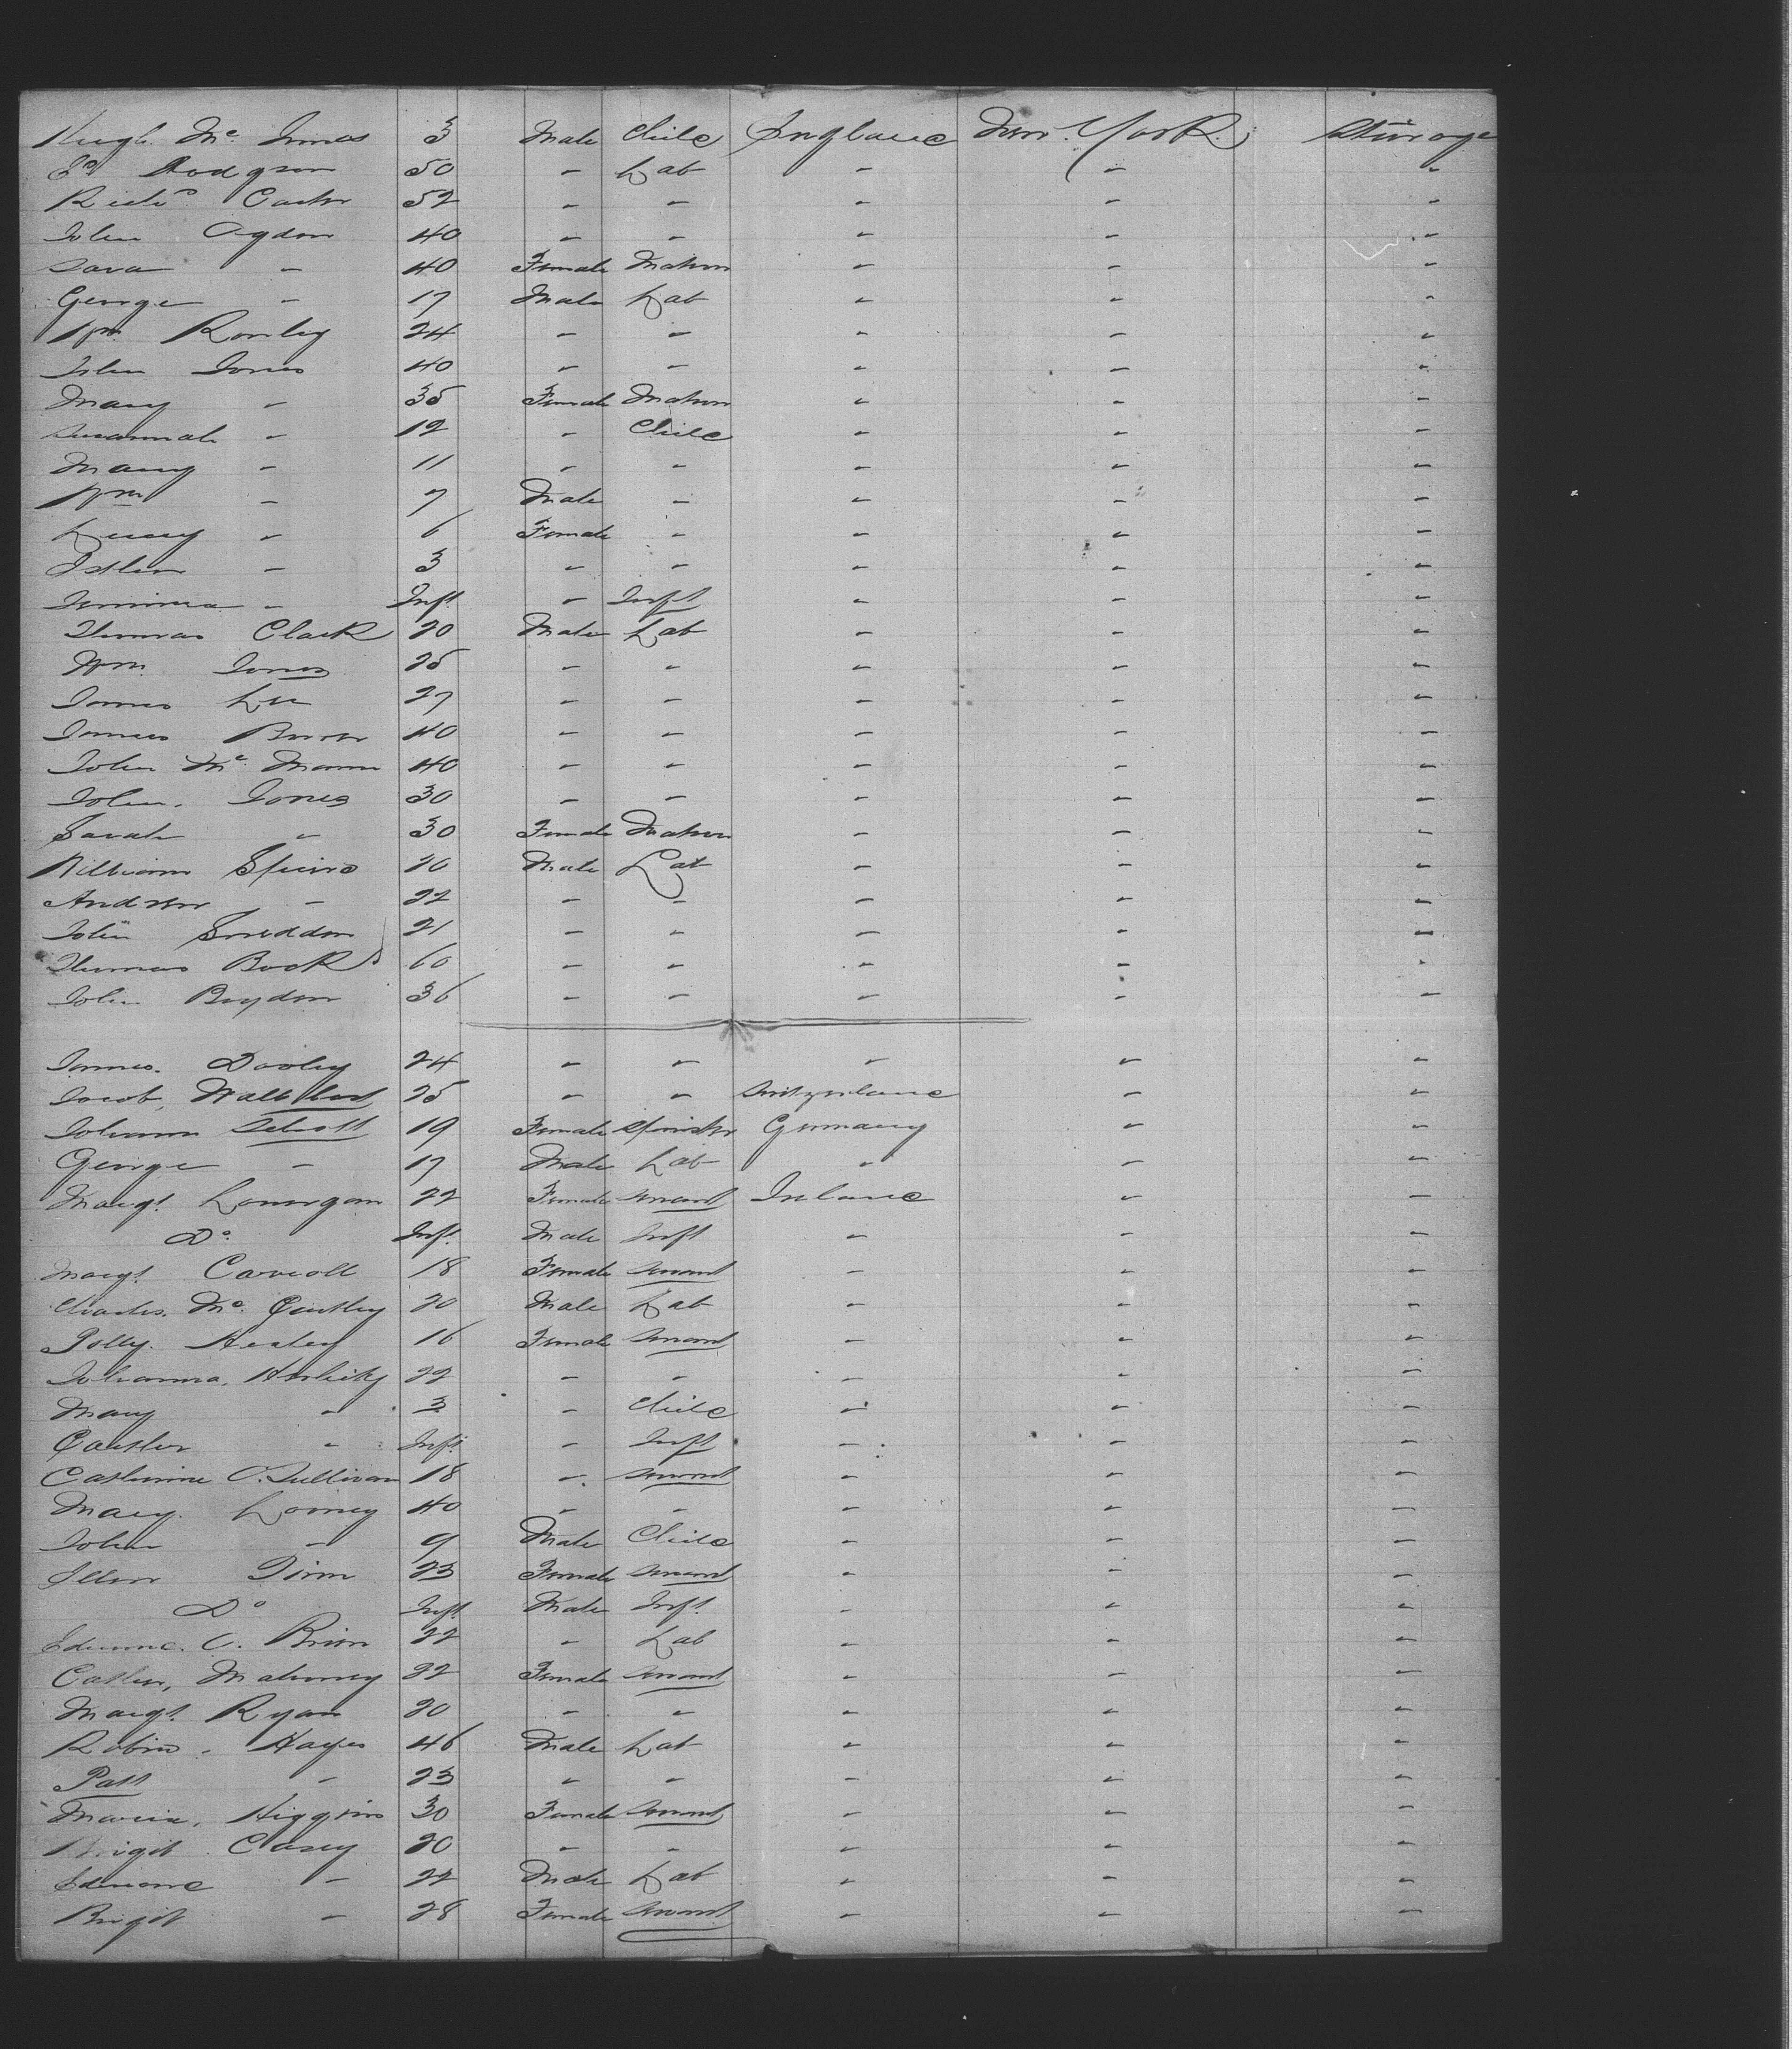 Hugh. Mc. Innes 3 Male Child England New. York. Steerage
Ed Hodgson 50 " Lab " " "
Richd Carter 52 " " " " "
John Ogdon 40 " " " " "
Sara " 40 Female Matron " " "
George " 17 Male Lab " " "
Wm. Rowley 24 " " " " "
John Jones 40 " " " " "
Mary " 35 Female Matron " " "
Susannah " 12 " Child " " "
Mary " 11 " " " " "
Wm " 7 Male " " " "
Lucey " 6 Female " " " "
Esther " 3 " " " " "
Jemima " Inft " Inft " " "
Thomas Clark 20 Male Lab " " "
Wm. Jones 25 " " " " "
James Lee 27 " " " " "
James 40 " " " " "
John Mc. Mann 40 " " " " "
John. Jones 30 " " " " "
Sarah " 30 Female Matron " " "
William Speirs 20 Male Lab " " "
Andrew " 22 " " " " "
John Sneddon 21 " " " " "
Thomas 60 " " " " "
John Boydon 36 " " " " "
James. Dooley 24 " " " " "
Jacob, 25 " " Switzerland " "
Johanna Schott 19 Female Spinster Germany " "
George " 17 Male Lab " " "
Margt. Lonergan 22 Female Servant Ireland " "
Do. Inft. Male Inft " " "
Margt. Carroll 18 Female Servant " " "
Charles. Mc. 20 Male Lab " " "
Polly. Healey 16 Female Servant " " "
Johanna, Herlihy 22 " " " " "
Mary " 3 " Child " " "
Cather " Inft. " Inft " " "
Catherine O.Sullivan 18 " Servant " " "
Mary. 40 " " " " "
John " 9 Male Child " " "
Ellen 23 Female Servant " " "
Do Inft. Male Inft. " " "
Edmund. O. Brien 22 " Lab " " "
Cather, Mahoney 22 Female Servant " " "
Margt. Ryan 20 " " " " "
Hayes 46 Male Lab " " "
Patt " 23 " " " " "
Maria, Higgins 30 Female Servant " " "
Brigit Casey 20 " " " " "
Edmond " 22 Male Lab " " "
Brigit " 28 Female Servant " " "